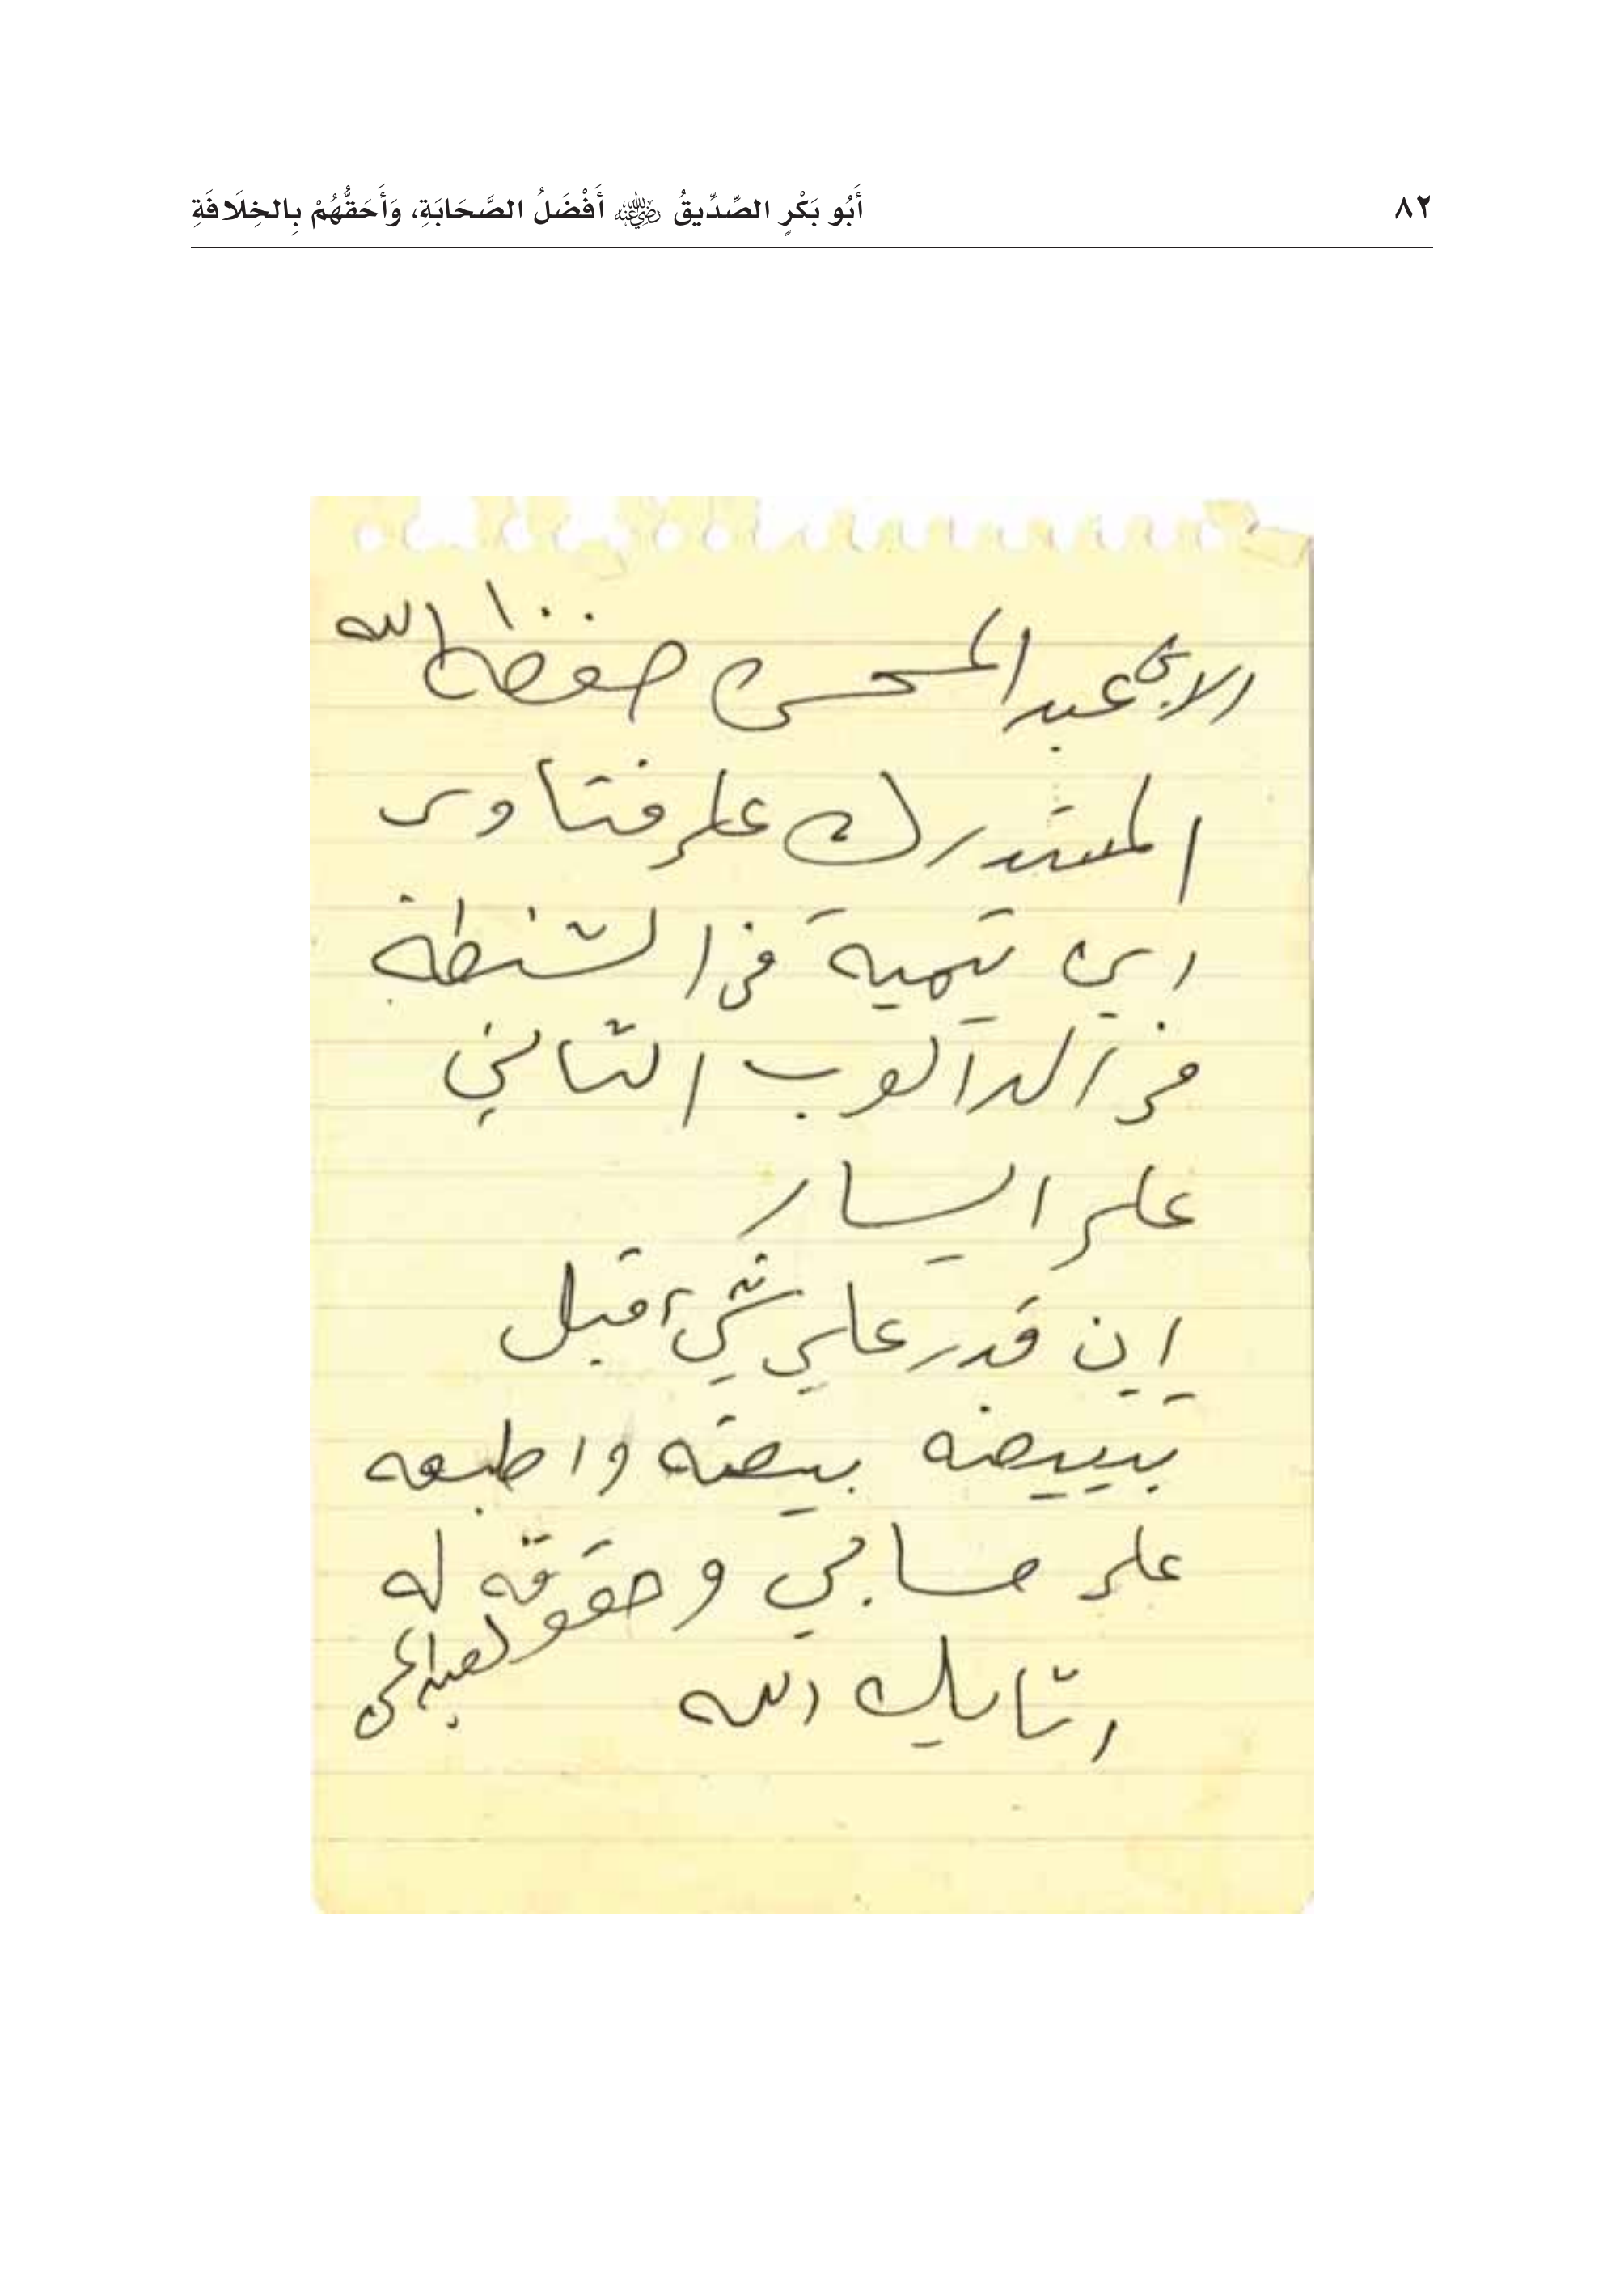 ٨٢
أَبُو بَكْرٍ الصِّدِّيقُ ﵁ أَفْضَلُ الصَّحَابَةِ، وَأَحَقُّهُمْ بِالخِلَافَةِ
الابن عبد المحسن حفظه الله
المستدرك على فتاوى
ابن تيمية في الشنطة
في الدالوب الثاني
على اليسار
إن قدر علي شيء قبل
تبييضه بيضته واطبعه
على حسابي وحقوقه له
لعبد المحسن
اثابك الله